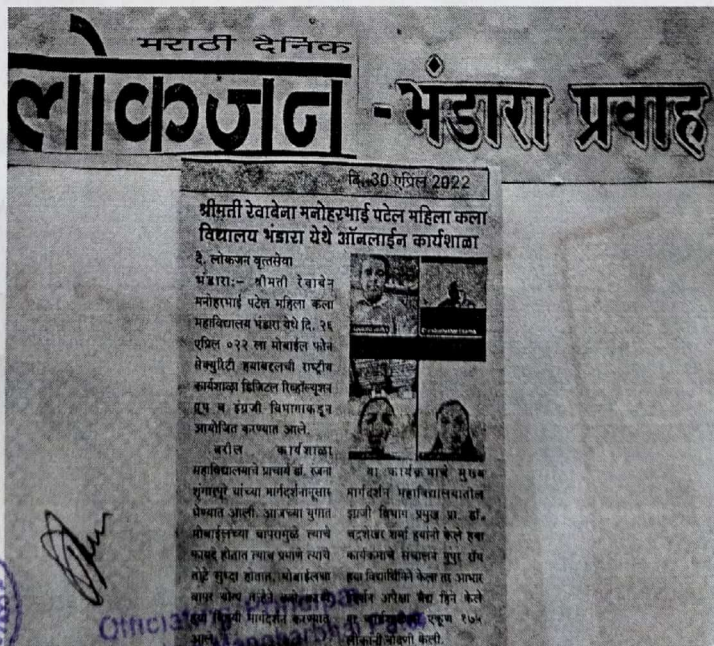 मराठी दैनिक
लोकजन - भंडारा प्रवाह
दि. 30 एप्रिल 2022
श्रीमती रेवाबेना मनोहरभाई पटेल महिला कला
विद्यालय भंडारा येथे ऑनलाईन कार्यशाळा
दै. लोकजन वृत्तसेवा
भंडारा:- श्रीमती रेवाबेन
मनोहरभाई पटेल महिला कला
महाविद्यालय भंडारा येथे दि. २६
एप्रिल ०२२ ला मोबाईल फोन
सेक्युरिटी हयाबद्दलची राष्ट्रीय
कार्यशाळा डिजिटल रिव्हॉल्यूशन
ग्रूप व इंग्रजी विभागाकडून
आयोजित करण्यात आले.
वरील कार्यशाळा
महाविद्यालयाचे प्राचार्य डॉ.
यांच्या मार्गदर्शनानुसार
घेण्यात आली. आजच्या युगात
मोबाईलच्या वापरामुळे त्याचे
फायदे होतात त्याच प्रमाणे त्याचे
तोटे सुध्दा होतात. मोबाईलचा
वापर योग्य
मार्गदर्शन करण्यात
आले.
या कार्यक्रमाचे मुख्य
मार्गदर्शन महाविद्यालयातील
इंग्रजी विभाग प्रमुख प्रा. डॉ.
चंद्रशेखर शर्मा हयांनी केले हया
कार्यक्रमाचे संचालन नुपुर रॉय
हया विद्यार्थिनिने केला तर आभार
केले
एकूण १७५
लोकांनी नोंदणी केली.
Officiating Principal